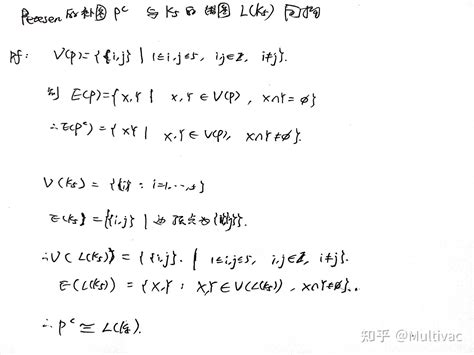 Petersen 的补图 P^c 与 K₅ 的线图 L(K₅) 同构
pf: V(P) = {{i,j} | 1≤i,j≤5, i,j∈Z, i≠j}.
则 E(P) = {X,Y | X,Y∈V(P), X∩Y=∅}
∴E(P^c) = {XY | X,Y∈V(P), X∩Y≠∅}.
V(K₅) = {{i} : i=1,…,5}
E(K₅) = {{i,j} | 边 点为 }.
∴V(L(K₅)) = {{i,j}. | 1≤i,j≤5, i,j∈Z, i≠j}.
E(L(K₅)) = {X,Y : X,Y∈V(L(K₅)), X∩Y≠∅}..
∴ P^c ≅ L(K₅).
知乎 @Multivac